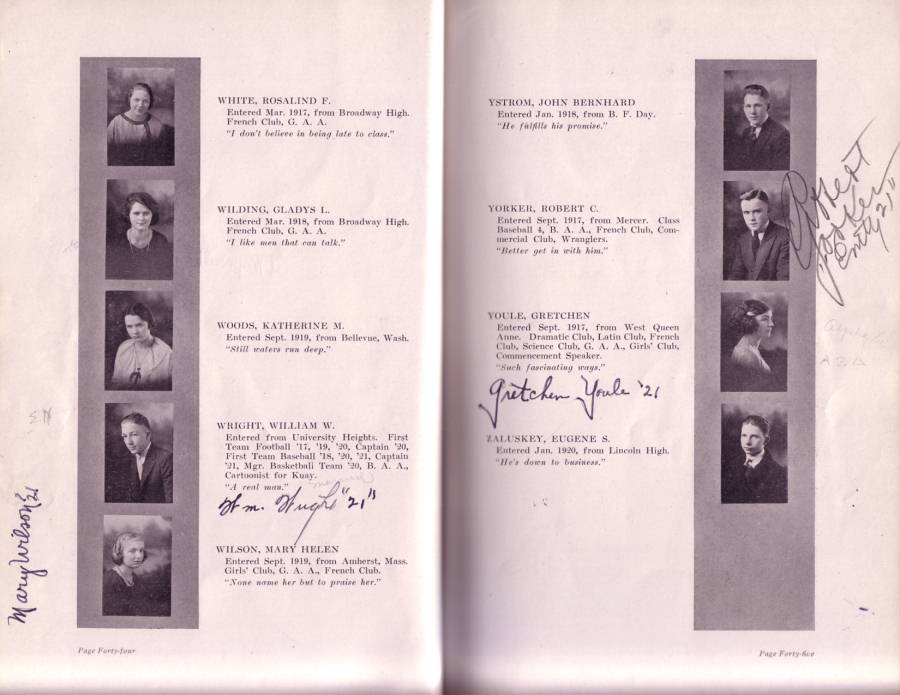 WHITE, ROSALIND F.
Entered Mar. 1917, from Broadway High.
French Club, G. A. A.
"I don't believe in being late to class."
WILDING, GLADYS L.
Entered Mar. 1918, from Broadway High.
French Club, G. A. A.
"I like men that can talk."
WOODS, KATHERINE M.
Entered Sept. 1919, from Bellevue, Wash.
"Still waters run deep."
WRIGHT, WILLIAM W.
Entered from University Heights. First
Team Football '17, '19, '20, Captain '20,
First Team Baseball '18, '20, '21, Captain
'21, Mgr. Basketball Team '20, B. A. A.,
Cartoonist for Kuay.
"A real man."
Wm. Wright "21"
WILSON, MARY HELEN
Entered Sept. 1919, from Amherst, Mass.
Girls' Club, G. A. A., French Club.
"None name her but to praise her."
Mary Wilson '21
Page Forty-four
YSTROM, JOHN BERNHARD
Entered Jan. 1918, from B. F. Day.
"He fulfills his promise."
YORKER, ROBERT C.
Entered Sept. 1917, from Mercer. Class
Baseball 4, B. A. A., French Club, Com-
mercial Club, Wranglers.
"Better get in with him."
Robert
Yorker
21"
YOULE, GRETCHEN
Entered Sept. 1917, from West Queen
Anne. Dramatic Club, Latin Club, French
Club, Science Club, G. A. A., Girls' Club,
Commencement Speaker.
"Such fascinating ways."
Gretchen Youle '21
ZALUSKEY, EUGENE S.
Entered Jan. 1920, from Lincoln High.
"He's down to business."
Page Forty-five